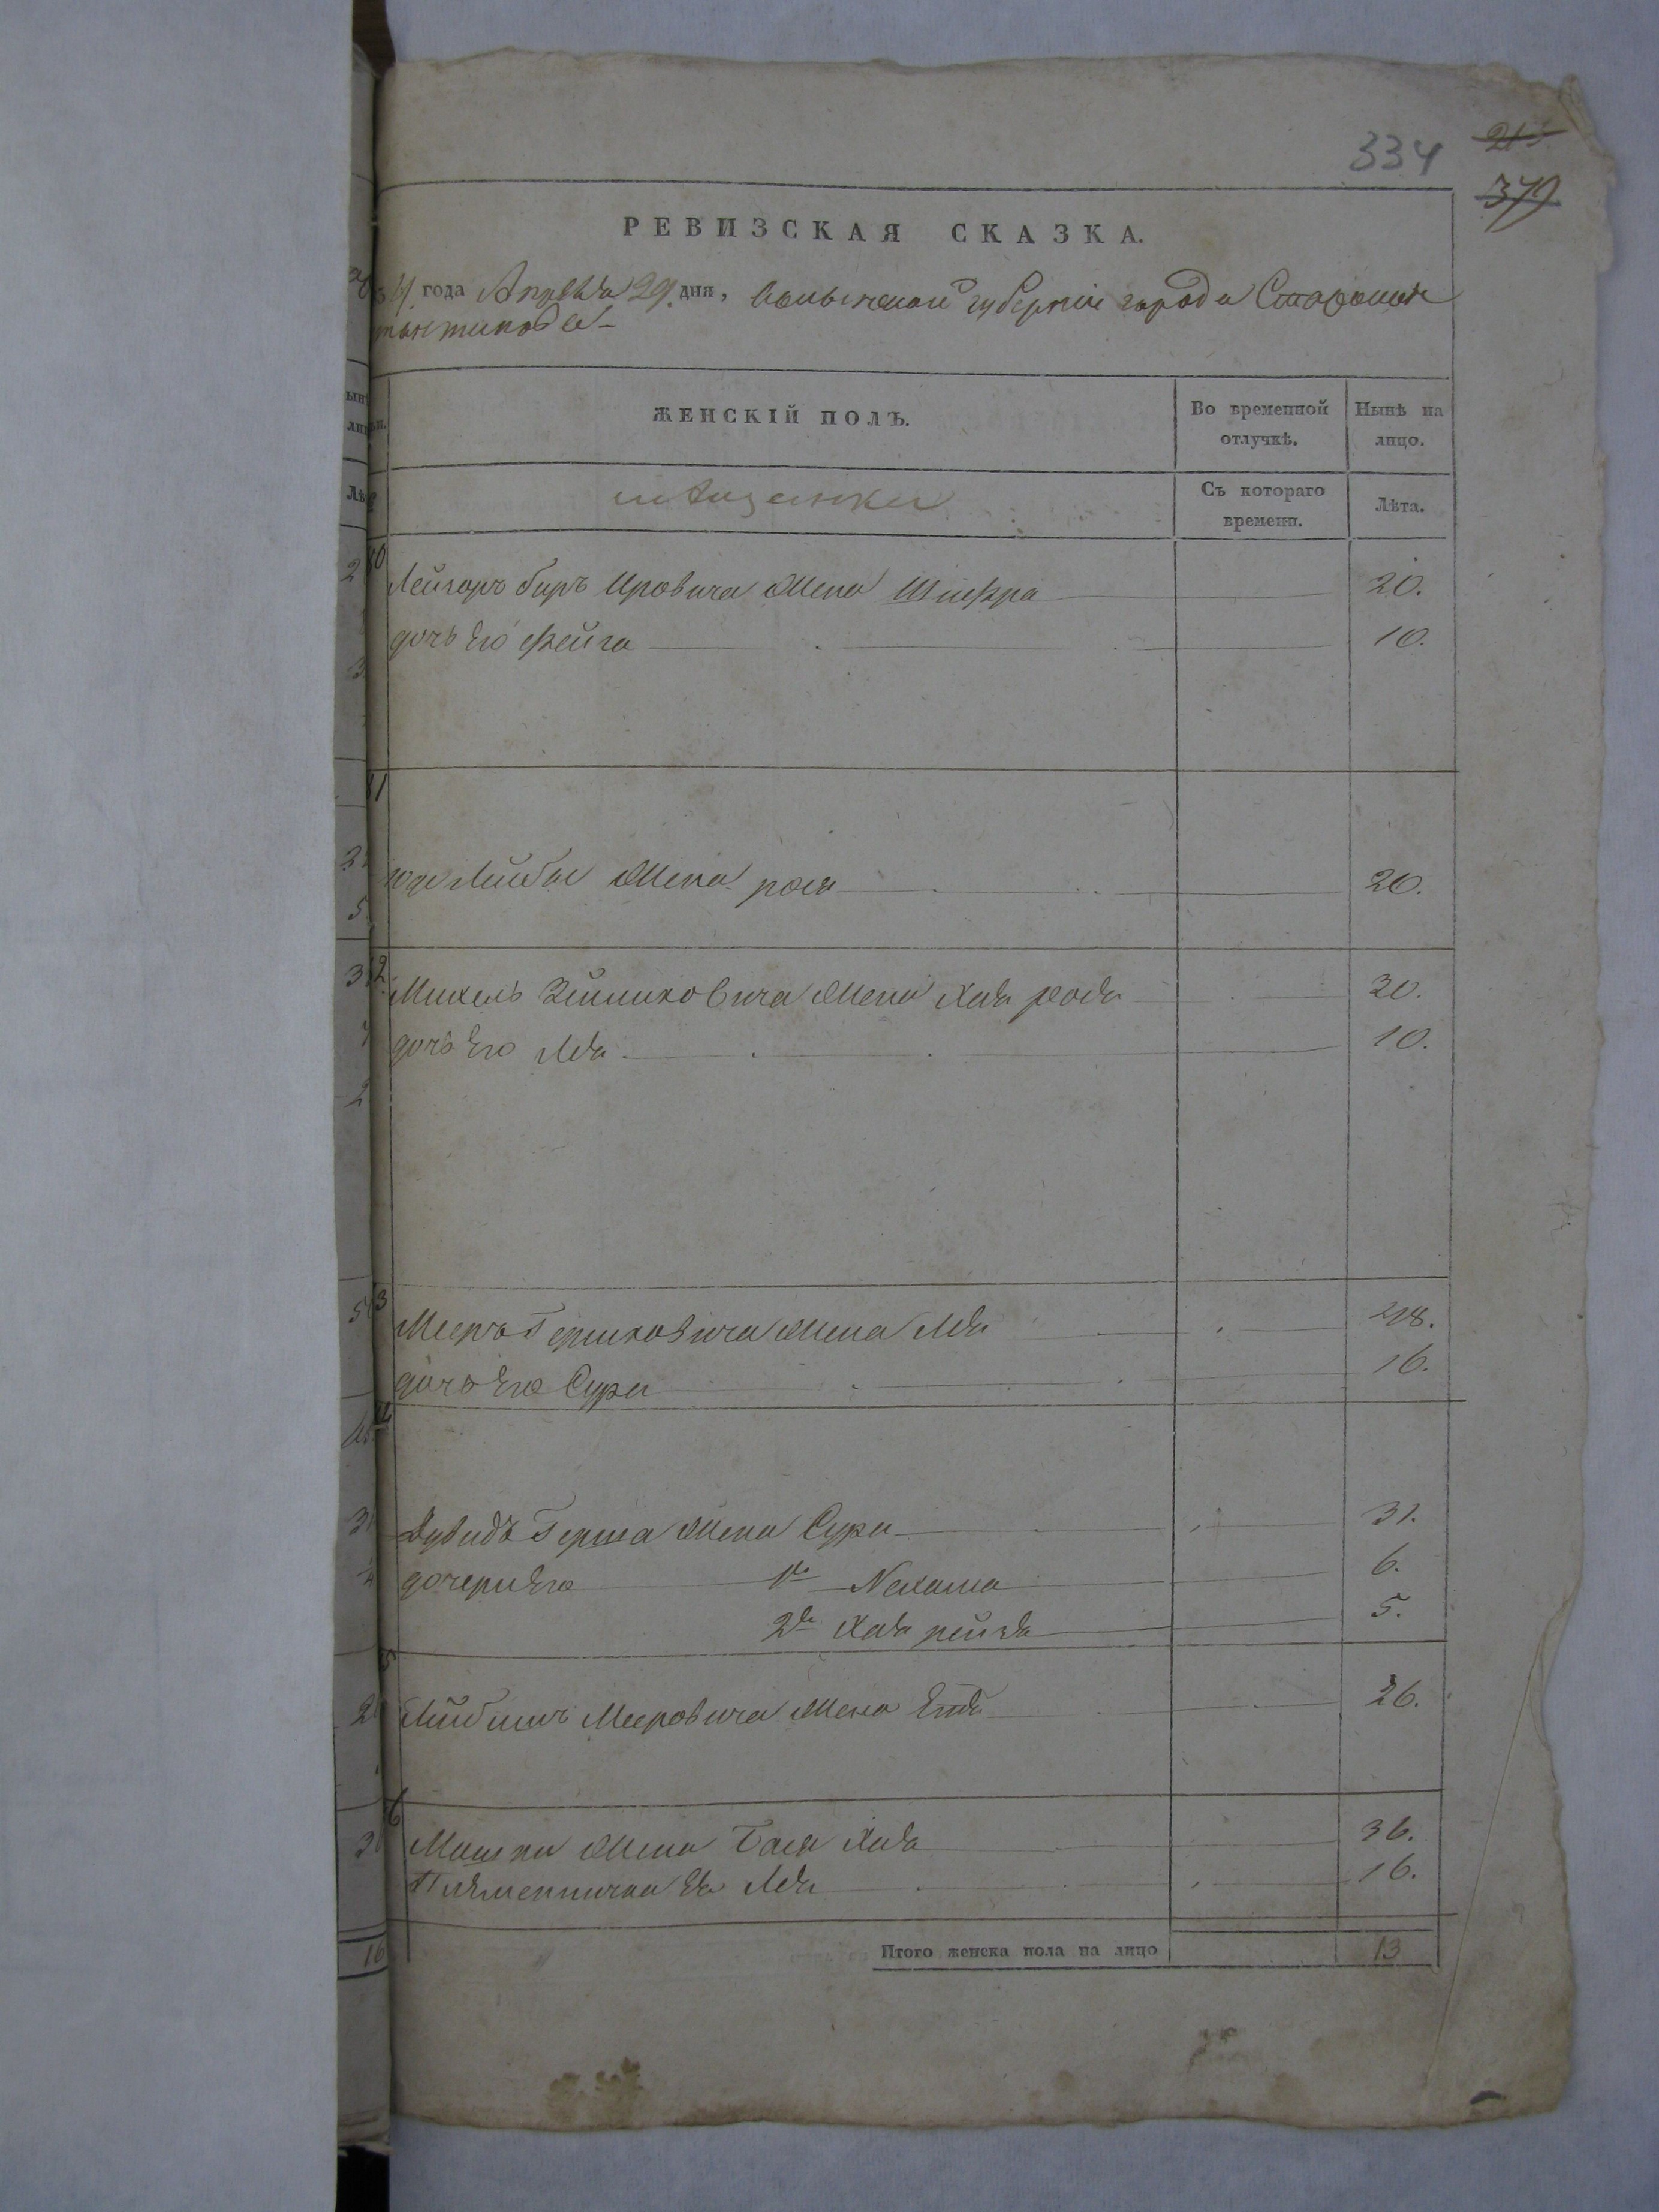 334
215
379
РЕВИЗСКАЯ СКАЗКА.
года Апреля 29. дня, Волынской губернии города Староконс
тантинова
ЖЕНСКІЙ ПОЛЪ.
Во временной отлучкѣ.
Нынѣ на лицо.
мѣщанки
Съ котораго времени.
Лѣта.
Лейзоръ беръ Ировича жена Шифра 20.
дочь Его Фейга 10.
11
Лейбы жена рося 20.
2
Михель Зейликовича жена Хая рода 30.
дочь Его Лея 10.
3
Мееръ Гершковича жена Лея 48.
дочь Его Сура 16.
Дувидъ Герша жена Сура 31.
дочери Его 1я Нехама 6.
2я Хая рейзя 5.
5
Мееровича жена Етя 26.
6
Мошки жена Бася Хая 36.
Племенничка Ея Лея 16.
Итого женска пола на лицо 13